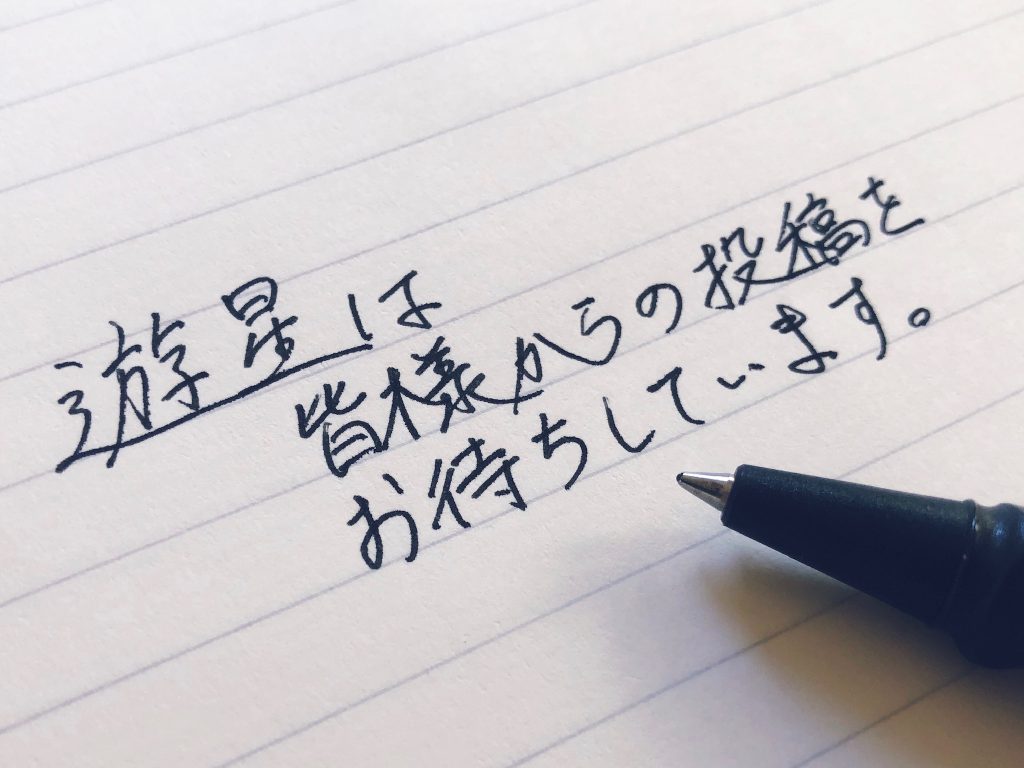 遊星は
皆様からの投稿を
お待ちしています。